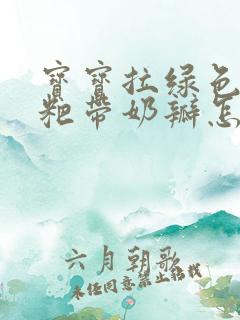 宝宝拉绿色
粑带奶瓣怎
六月朝歌
未经同意禁止转载